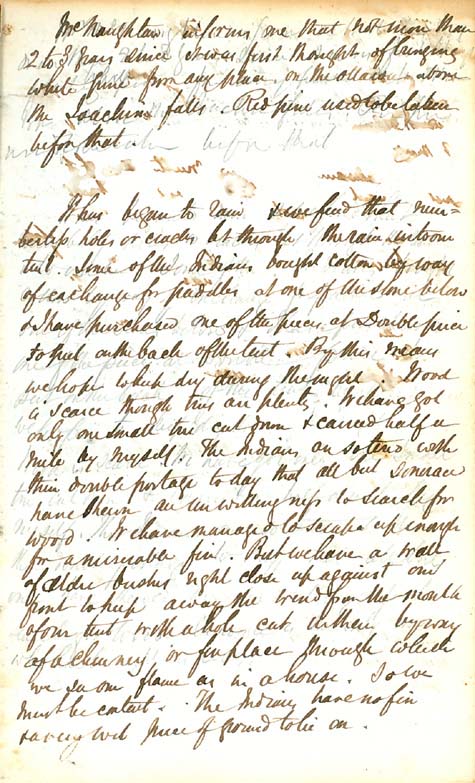 McNaughtan informs me that not more than
2 to 3 years since it was first thought of bringing
white pine from any place on the Ottawa above
the Joachim falls. Red pine used to be taken
before that

It has began to rain & we find that num-
berless holes or cracks let through the rain into our
tent. Some of the Indians bought cotton by way
of exchange for paddles at one of the stores below
& I have purchased one of the pieces at Double price
to put on the back of the tent. By this means
we hope to keep dry during the night. Wood
is scarce though trees are plenty. We have got
only one small tree cut down & carried half a
mile by myself. The Indians are so tired with
their double portage to day that all but
have shewn an unwillingness to search for
wood. We have managed to scrape up enough
for a miserable fire. But we have a wall
of Alder bushes right close up against our
front to keep away the wind from the mouth
of our tent with a hole cut in them by way
of a chimney or fireplace through which
we see our flame as in a house. So we
must be content. The Indians have no fire
& a very wet piece of ground to lie on.